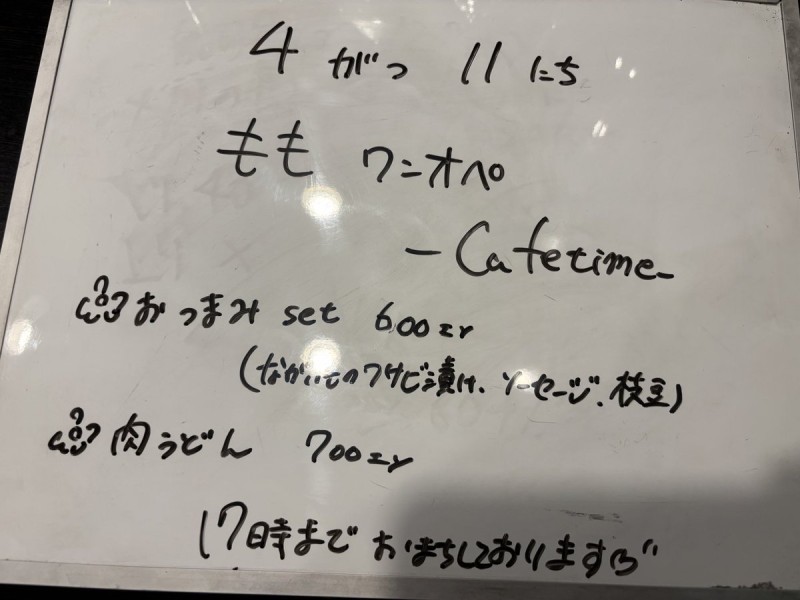 4がつ 11にち
もも ワンオペ
-Cafetime-
おつまみ set 600エン
(ながいものワサビ漬け、ソーセージ、枝豆)
肉うどん 700エン
17時まで おまちしております